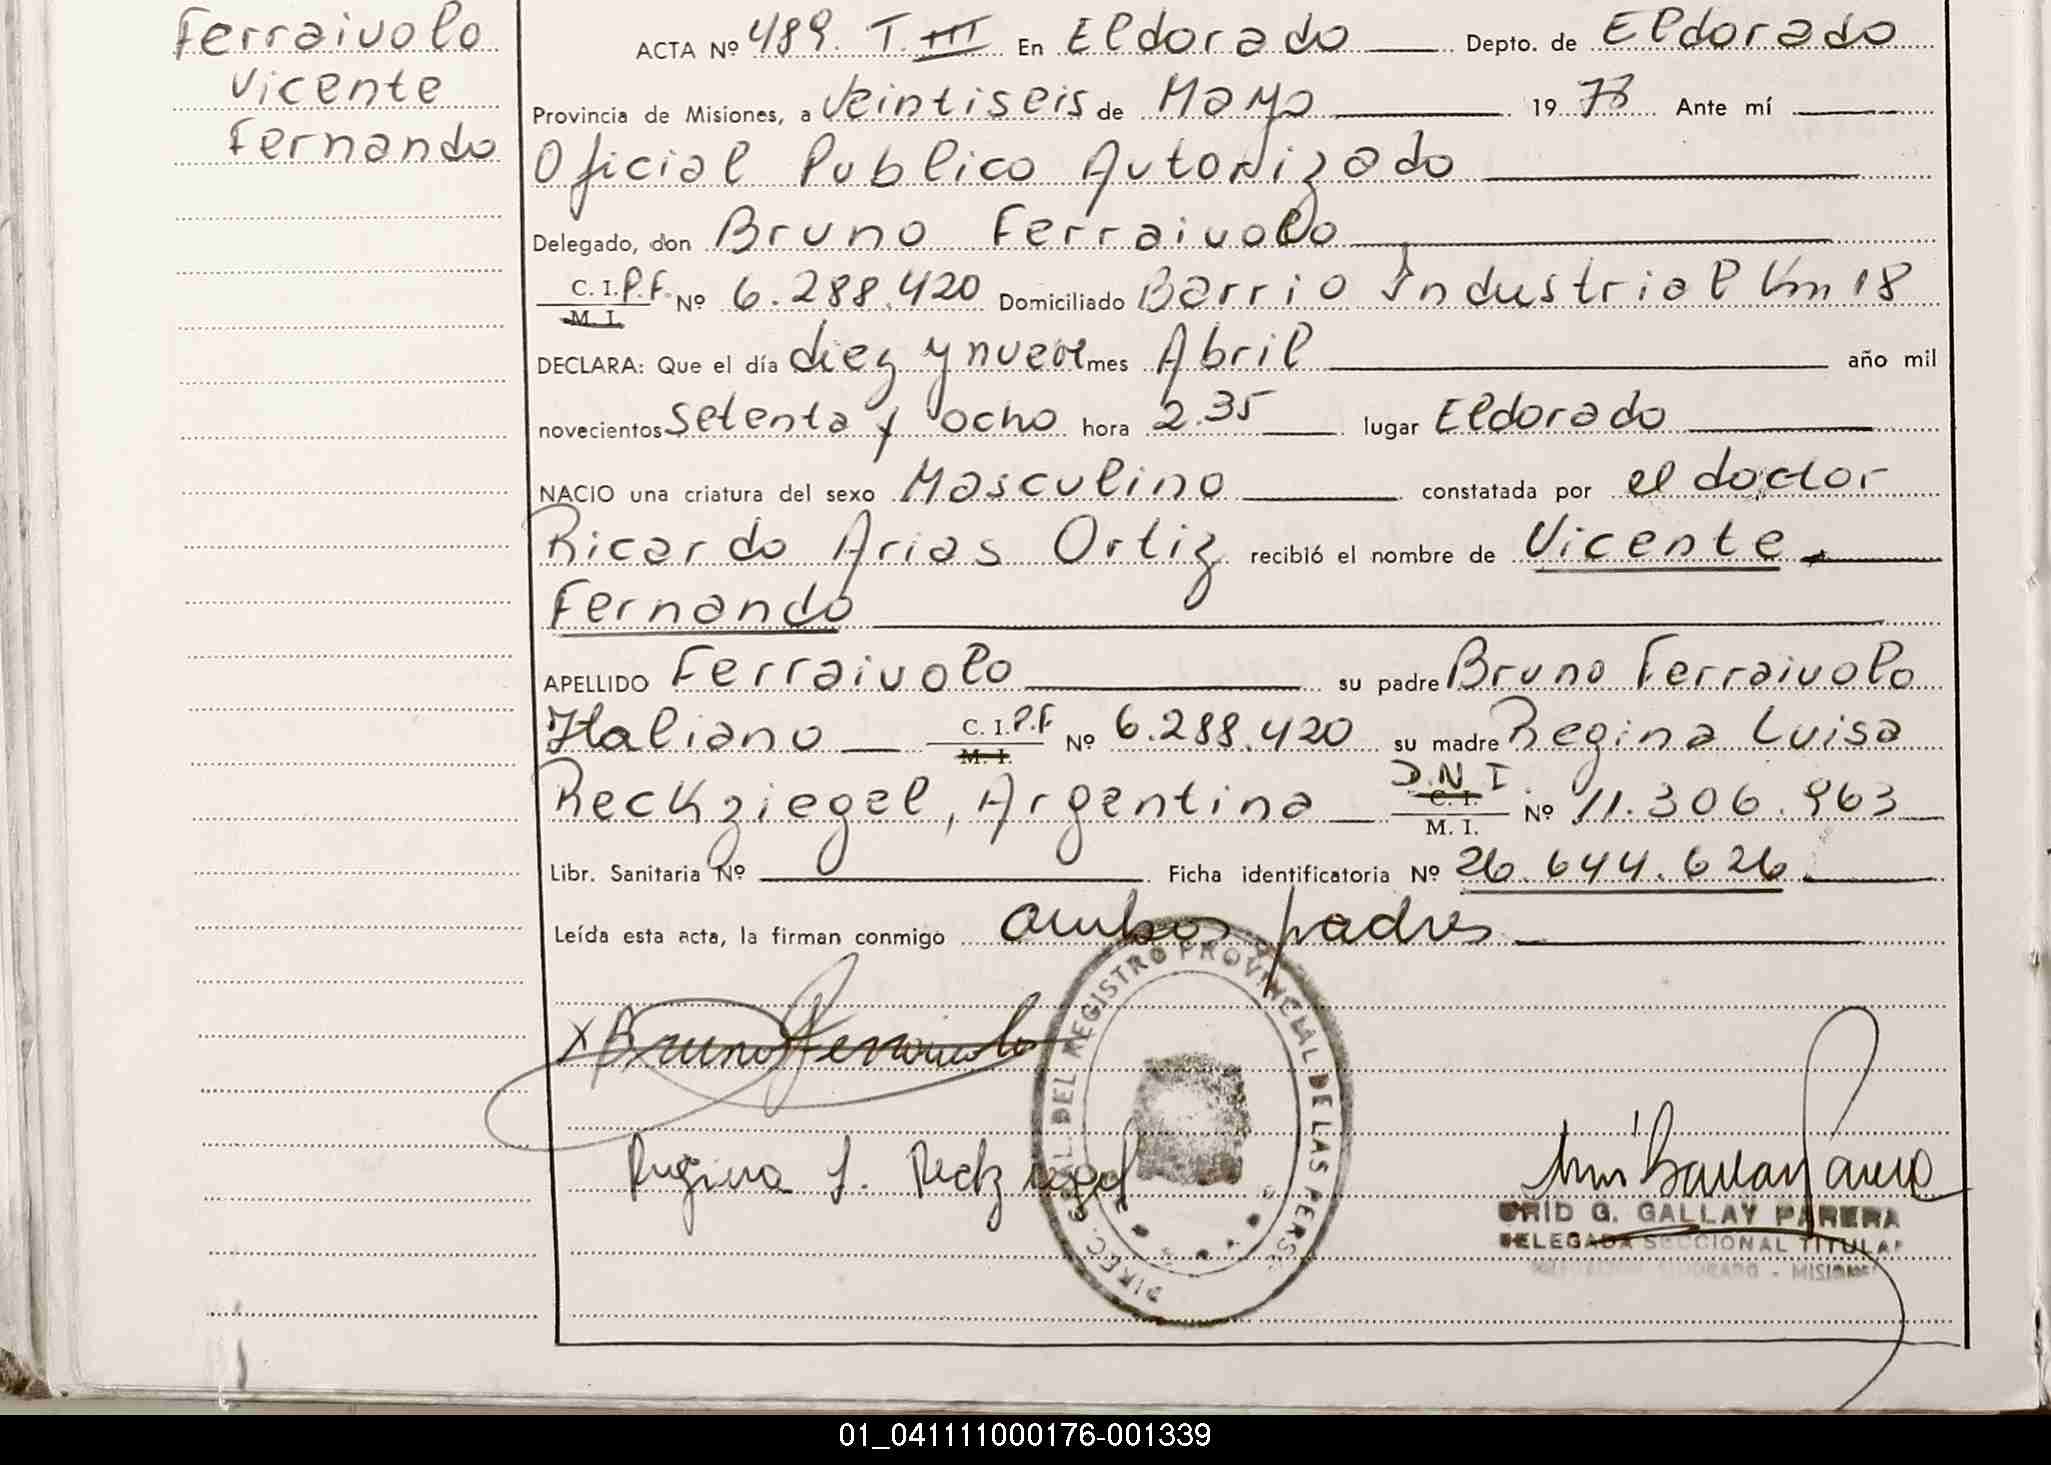 Ferraiuolo
Vicente
Fernando
ACTA Nº 489. T. III En Eldorado Depto. de Eldorado
Provincia de Misiones, a Veintiseis de Mayo 19 78 Ante mí
Oficial Publico Autorizado
Delegado, don Bruno Ferraiuolo
C. I. P.F. Nº 6.288.420 Domiciliado Barrio Industrial Km 18
M. I.
DECLARA: Que el día diez y nueve mes Abril año mil
novecientos Setenta y ocho hora 2.35 lugar Eldorado
NACIO una criatura del sexo Masculino constatada por el doctor
Ricardo Arias Ortiz recibió el nombre de Vicente
Fernando
APELLIDO Ferraiuolo su padre Bruno Ferraiuolo
Italiano C. I. P.F Nº 6.288.420 su madre Regina Luisa
M. I.
D.N.I.
Reckziegel, Argentina C. I. Nº 11.306.963
M. I.
Libr. Sanitaria Nº Ficha identificatoria Nº 26.644.626
Leída esta acta, la firman conmigo ambos padres
X Bruno Ferraiuolo
Regina L. Reckziegel
DIREC. GRAL. DEL REGISTRO PROVINCIAL DE LAS PERS
G. GALLAY PARERA
DELEGADA SECCIONAL TITULAR
ELDORADO - MISIONES
01_041111000176-001339